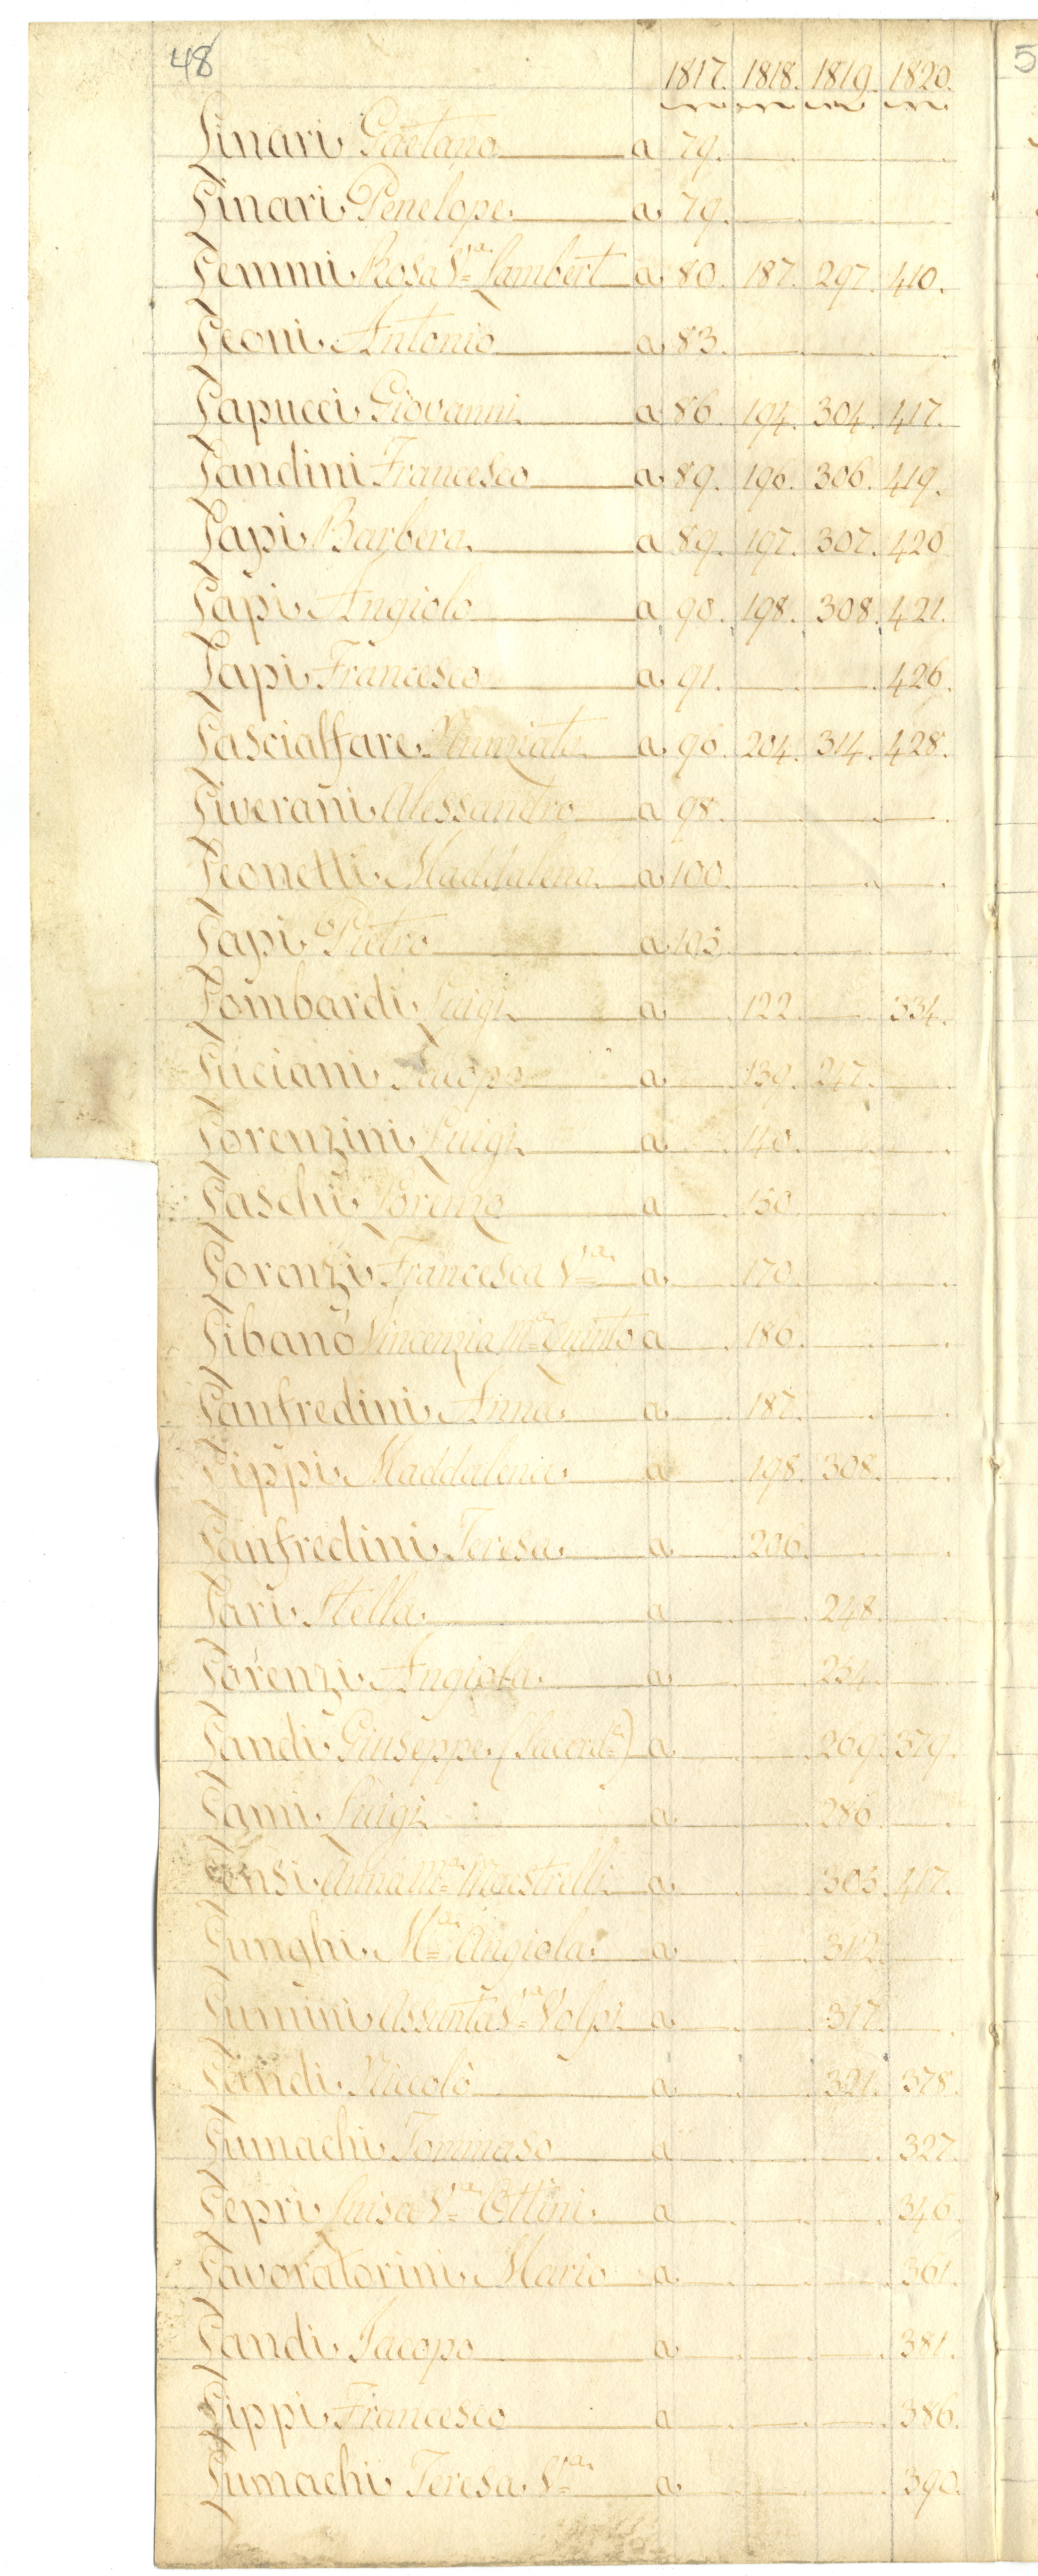 48
1817. 1818. 1819. 1820.
Linari Gaetano a 79.
Linari Penelope a 79.
Lemmi Rosa V.a Lambert a 80. 187. 297. 410.
Leoni Antonio a 83.
Lapucci Giovanni a 86. 194. 304. 417.
Landini Francesco a 89. 196. 306. 419.
Lapi Barbera a 89. 197. 307. 420
Lapi Angiolo a 90. 198. 308. 421.
Lapi Francesco a 91. 426.
Lascialfare Nunziata a 96. 204. 314. 428.
Liverani Alessandro a 98.
Leonetti Maddalena a 100.
Lapi Pietro a 105
Lombardi Luigi a 122. 334.
Luciani Jacopo a 139. 247.
Lorenzini Luigi a 140.
Laschi Lorenzo a 150.
Lorenzi Francesca V.a a 170.
Libanò Vincenzia M.a Quinto a 186.
Lanfredini Anna a 187.
Lippi Maddalena a 198. 308.
Lanfredini Teresa a 206.
Lari Stella a 248.
Lorenzi Angiola a 254.
Landi Giuseppe (Sacerd.e) a 269. 379.
Lami Luigi a 286.
Lensi Anna M.a Maestrelli a 303. 417.
Lunghi M.a Angiola a 312.
Lumini Assunta V.a Volpi a 317.
Landi Niccolò a 321. 378.
Lumachi Tommaso a 327.
Lepri Luisa V.a Ottini a 346.
Lavoratorini Mario a 361.
Landi Jacopo a 381.
Lippi Francesco a 386.
Lumachi Teresa V.a a 390.
5